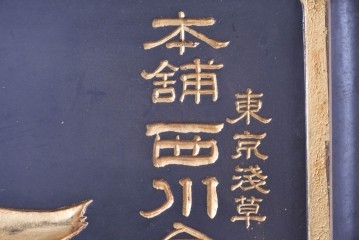 東京淺草
本舗西川